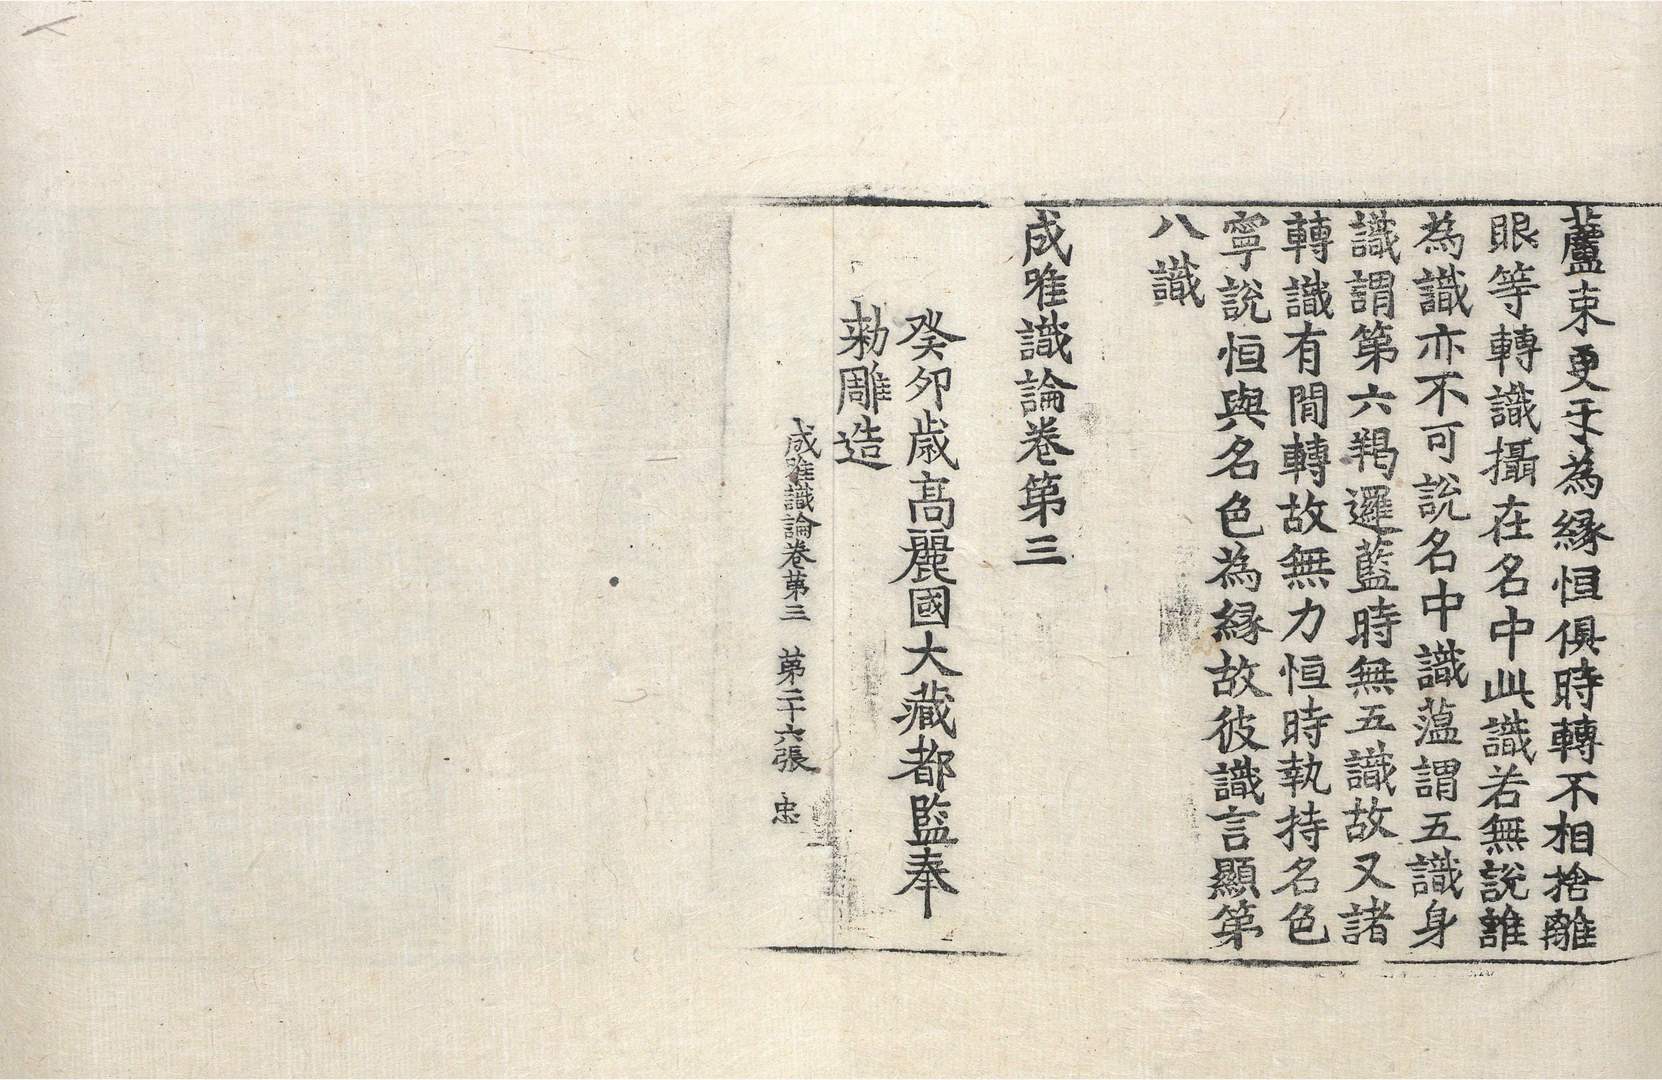 蘆束更互為縁恒俱時轉不相捨離
眼等轉識攝在名中此識若無說誰
為識亦不可說名中識蘊謂五識身
識謂第六羯邏藍時無五識故又諸
轉識有閒轉故無力恒時執持名色
寧說恒與名色為縁故彼識言顯第
八識
成唯識論卷第三
癸卯歲高麗國大藏都監奉
勅雕造
成唯識論卷第三 第二十六張 忠